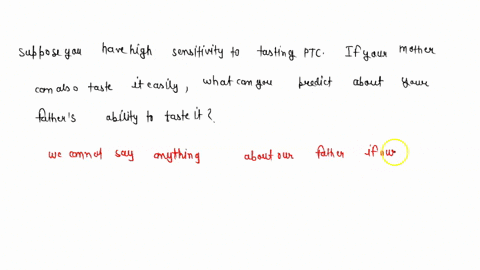 Suppose you have high sensitivity to tasting PTC. If your mother
can also taste it easily, what can you predict about your
father's ability to taste it?
we cannot say anything about our father if our